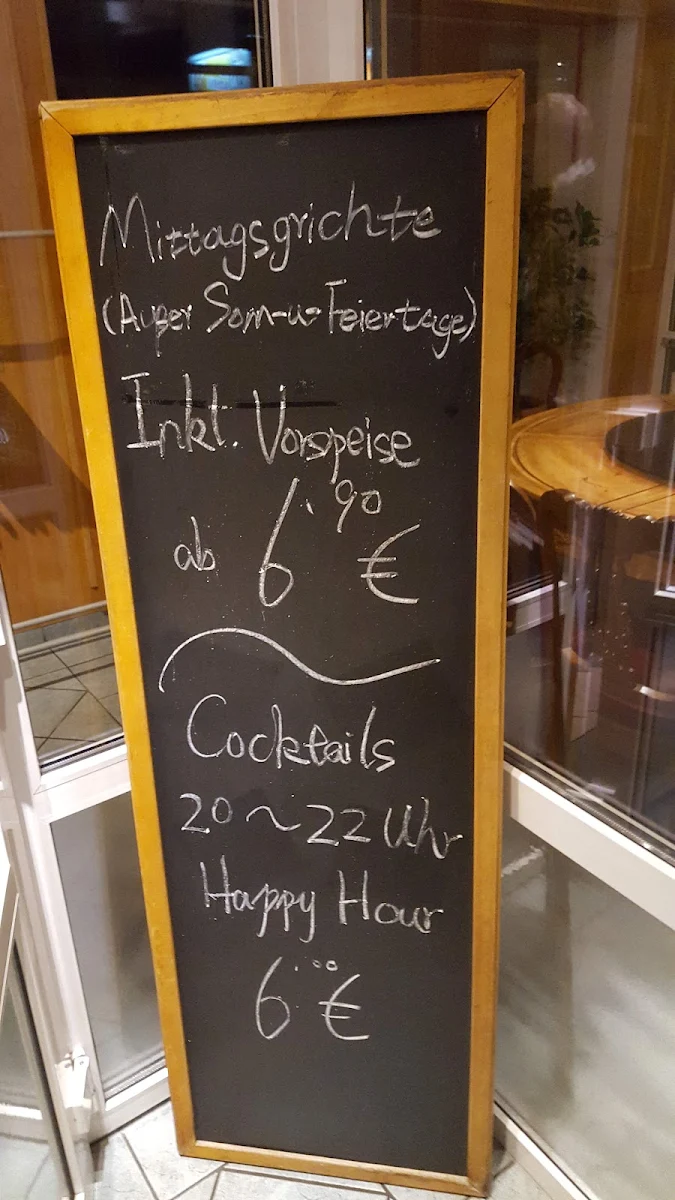 Mittagsgrichte
(Außer Sonn-u-Feiertage)
Inkl. Vorspeise
ab 6.90 €
Cocktails
20~22 Uhr
Happy Hour
6.00 €